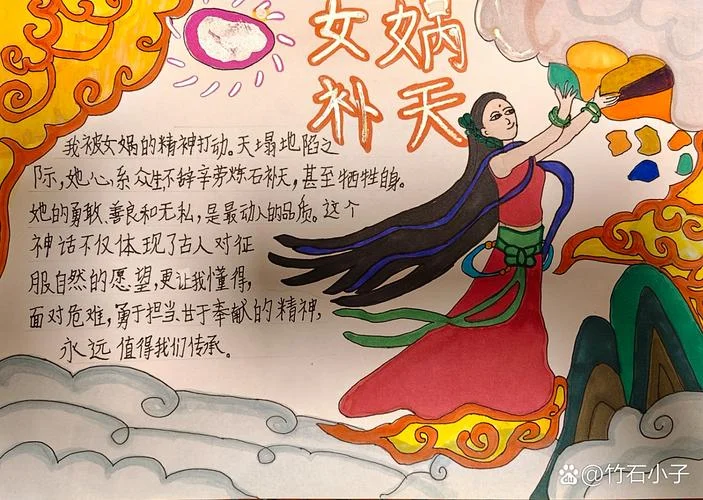 女娲
补天
我被女娲的精神打动。天塌地陷之
际,她心系众生,不辞辛劳炼石补天,甚至牺牲自身。
她的勇敢、善良和无私,是最动人的品质。这个
神话不仅体现了古人对征
服自然的愿望,更让我懂得,
面对危难,勇于担当、甘于奉献的精神,
永远值得我们传承。
@竹石小子